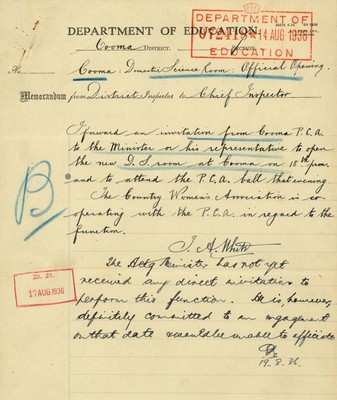 DEPARTMENT OF EDUCATION,
DEPARTMENT OF
14 AUG 1936
EDUCATION
Cooma DISTRICT.
No
Cooma: Domestic Science Room: Official Opening.
Memorandum from District Inspector to Chief Inspector
I forward an invitation from Cooma P.C.A.
to the Minister or his representative to open
the new D.S. room at Cooma on 18th prox.
and to attend the P.C.A. ball that evening
The Country Women's Association is co-
operating with the P.C.A. in regard to the
function.
J. A. White
B
D. D.
17 AUG 1936
The Actg Minister has not yet
received any direct invitation to
perform this function. He is, however,
definitely committed to an engagement
on that date & would be unable to officiate
19.8.36